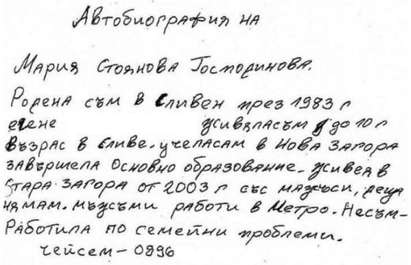 Автобиография на
Мария Стоянова Господинова.
Родена съм в Сливен през 1983 г
живяласъм до 10 г
възрас в сливе. учеласам в Нова Загора
завършела основно образование. живея в
Стара Загора от 2003 г със мажъси, деца
нямам. мъжъми работи в Метро. Несъм-
Работила по семейни проблеми.
чейсем - 0896